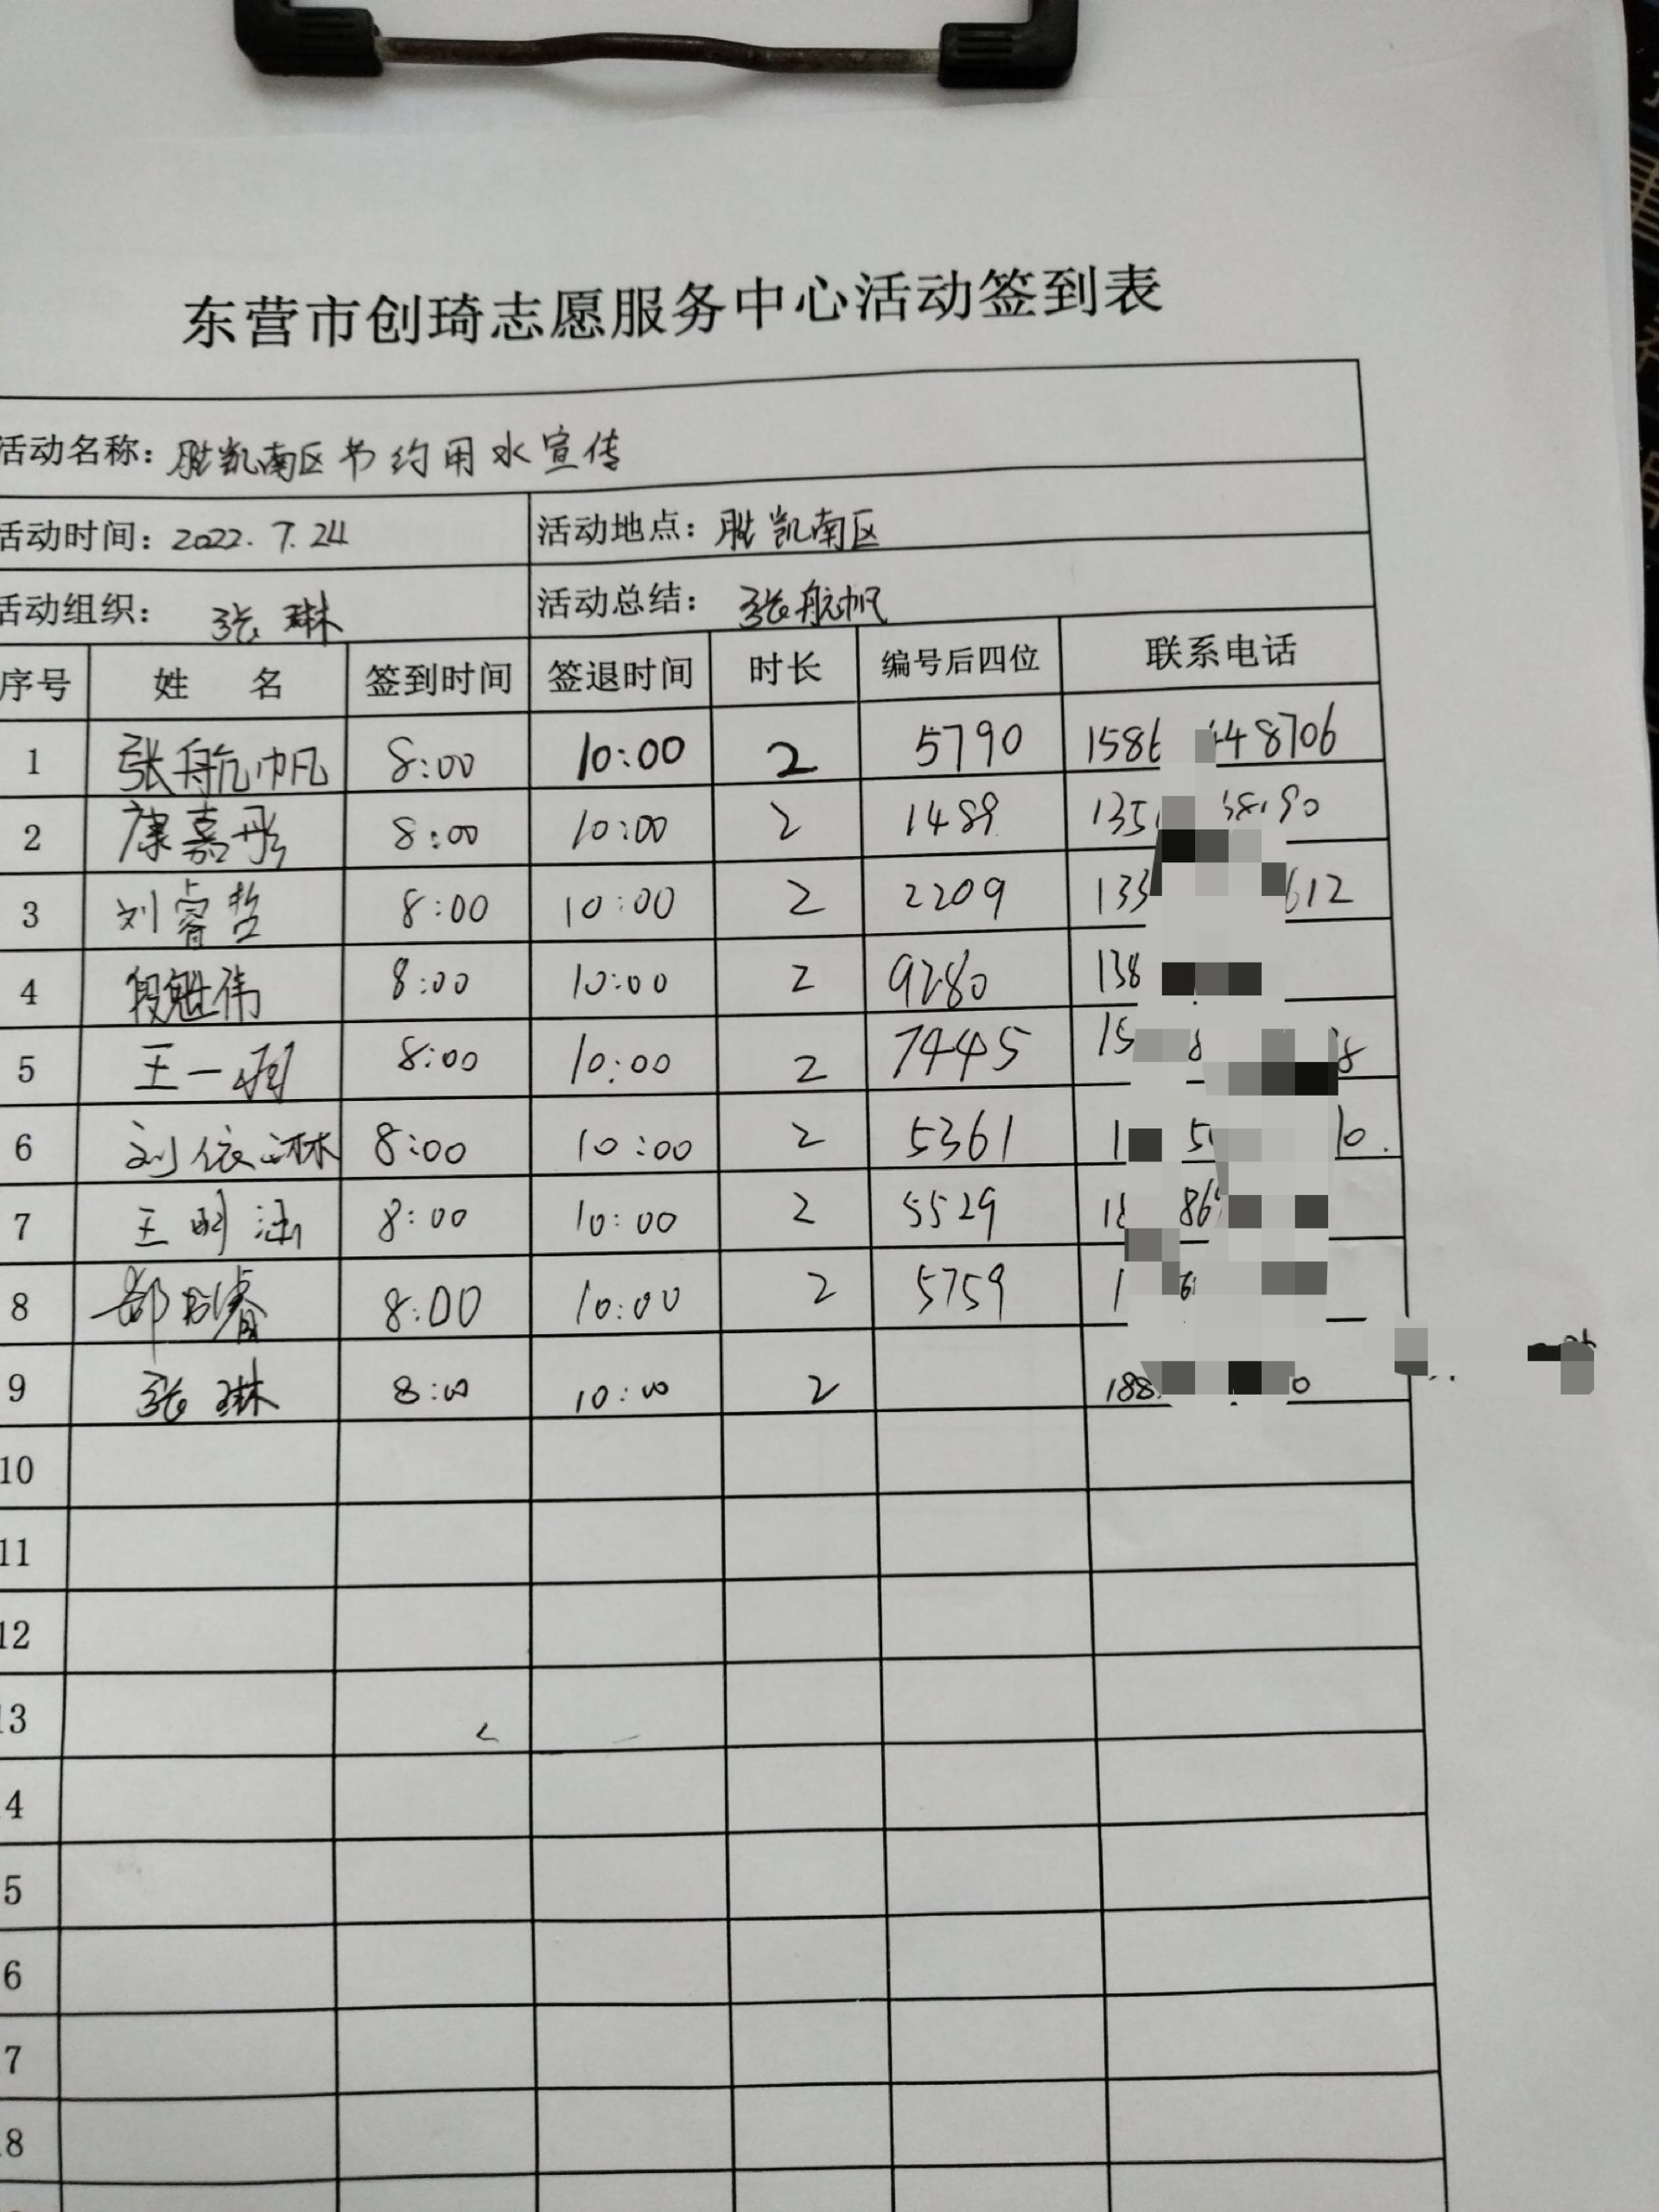 东营市创琦志愿服务中心活动签到表
活动名称：胜凯南区节约用水宣传
活动时间：2022.7.24 活动地点：胜凯南区
活动组织：张琳 活动总结：张航帆
序号 姓名 签到时间 签退时间 时长 编号后四位 联系电话
1 张航帆 8:00 10:00 2 5790 1586 48706
2 康嘉彤 8:00 10:00 2 1489 135 90
3 刘睿哲 8:00 10:00 2 2209 133 612
4 段魁伟 8:00 10:00 2 9280 138
5 王一 8:00 10:00 2 7445 15 8 8
6 刘依淋 8:00 10:00 2 5361 1 5 10.
7 王明涵 8:00 10:00 2 5529 18 86
8 8:00 10:00 2 5759 1 6
9 张琳 8:00 10:00 2 188 0
10
11
12
13
4
5
6
7
8